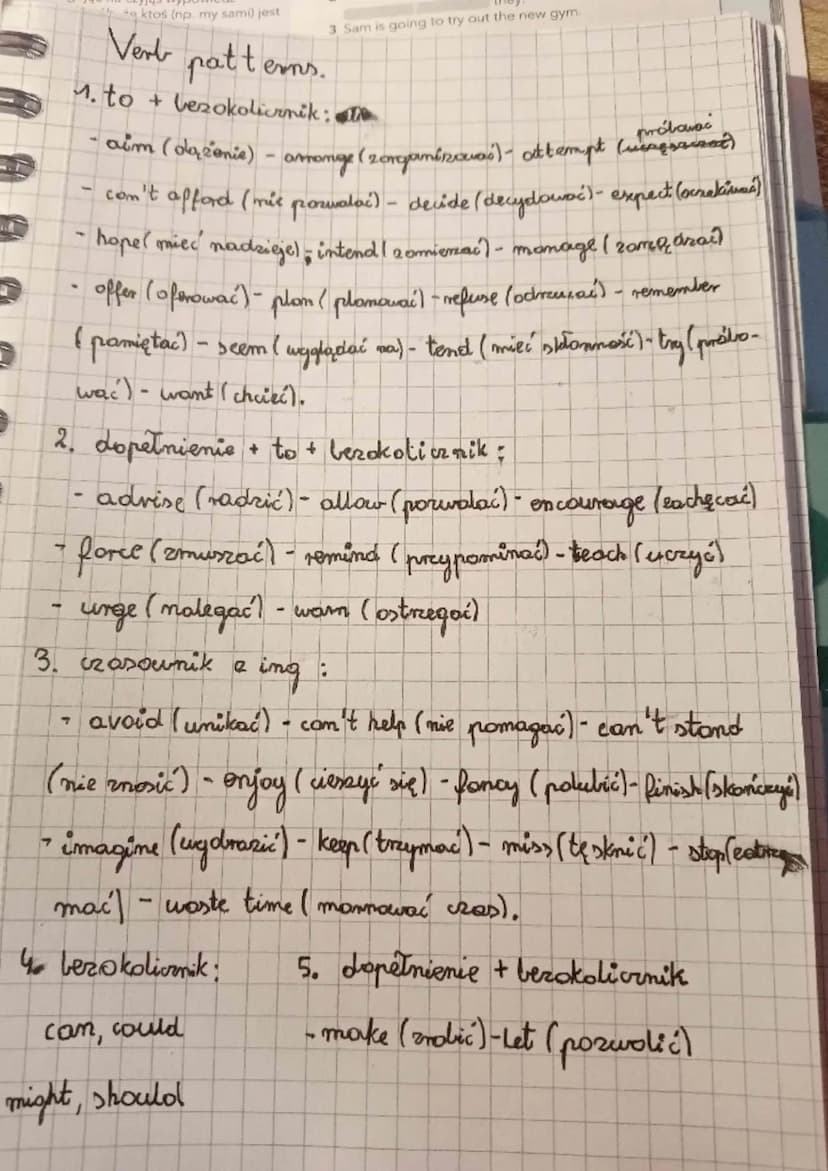 ktoś (np. my sami) jest
they.
3 Sam is going to try out the new gym.
Verb patterns.
1. to + bezokolicznik:
- aim (dążenie) - arrange (zorganizować) - attempt (próbować)
- can't afford (nie pozwalać) - decide (decydować) - expect (oczekiwać)
- hope (mieć nadzieje) - intend (zamierzać) - manage (zarządzać)
- offer (oferować) - plan (planować) - refuse (odrzucać) - remember
(pamiętać) - seem (wyglądać na) - tend (mieć skłonność) - try (próbo-
wać) - want (chcieć).
2. dopełnienie + to + bezokolicznik:
- advise (radzić) - allow (pozwalać) - encourage (zachęcać)
- force (zmuszać) - remind (przypominać) - teach (uczyć)
- urge (nalegać) - warn (ostrzegać)
3. czasownik z ing :
- avoid (unikać) - can't help (nie pomagać) - can't stand
(nie znosić) - enjoy (cieszyć się) - fancy (polubić) - finish (skończyć)
- imagine (wyobrazić) - keep (trzymać) - miss (tęsknić) - stop (zatrzy
mać) - waste time (marnować czas).
4. bezokolicznik: 5. dopełnienie + bezokolicznik
can, could - make (zrobić) - Let (pozwolić)
might, should